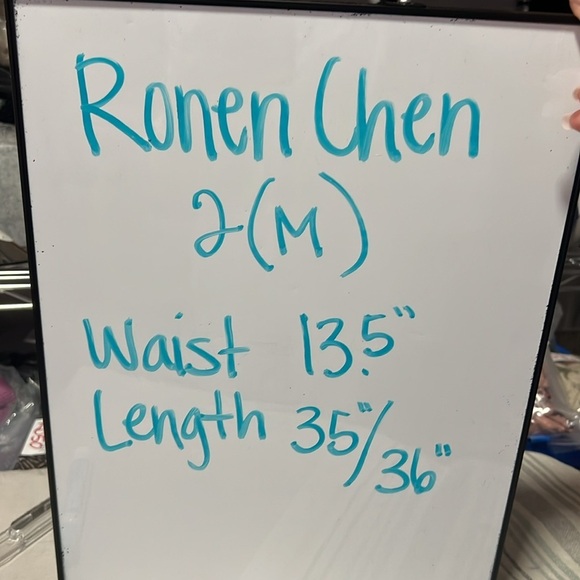 Ronen Chen
2(M)
Waist 13.5"
Length 35"/36"